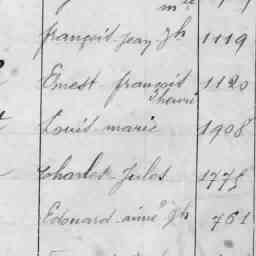 mie
françois jean Jh 1119
Ernest françois 1120
Théodore
Louis marie 1908
Charles Jules 1775
Edouard aimé Jh 761